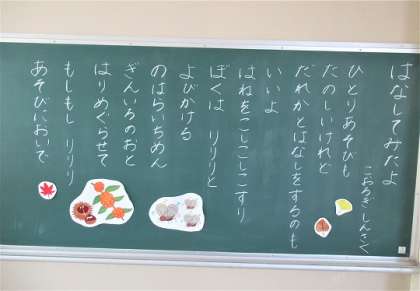 はなしてみたよ
こおろぎ しんさく
ひとりあそびも
たのしいけれど
だれかとはなしをするのも
いいよ
はねをこしこしこすり
ぼくは りりりと
よびかける
のはらいちめん
ぎんいろのおと
はりめぐらせて
もしもし りりり
あそびにおいで